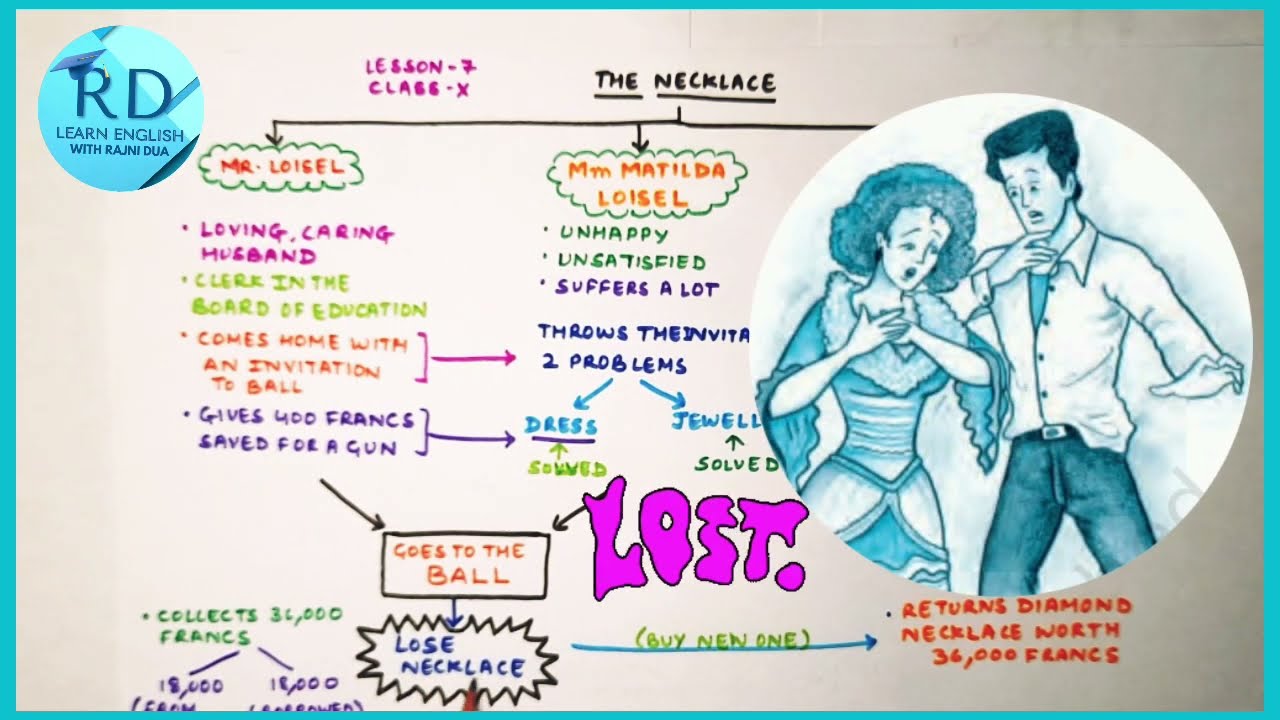 RD
LEARN ENGLISH
WITH RAJNI DUA
LESSON-7
CLASS-X
THE NECKLACE
MR. LOISEL
• LOVING, CARING
HUSBAND
• CLERK IN THE
BOARD OF EDUCATION
• COMES HOME WITH
AN INVITATION
TO BALL
• GIVES 400 FRANCS
SAVED FOR A GUN
Mm MATILDA
LOISEL
• UNHAPPY
• UNSATISFIED
• SUFFERS A LOT
THROWS THE INVITA
2 PROBLEMS
DRESS
SOLVED
JEWELL
SOLVED
LOST.
GOES TO THE
BALL
LOSE
NECKLACE
(BUY NEW ONE)
• RETURNS DIAMOND
NECKLACE WORTH
36,000 FRANCS
• COLLECTS 36,000
FRANCS
18,000
(FROM
18,000
(BORROWED)